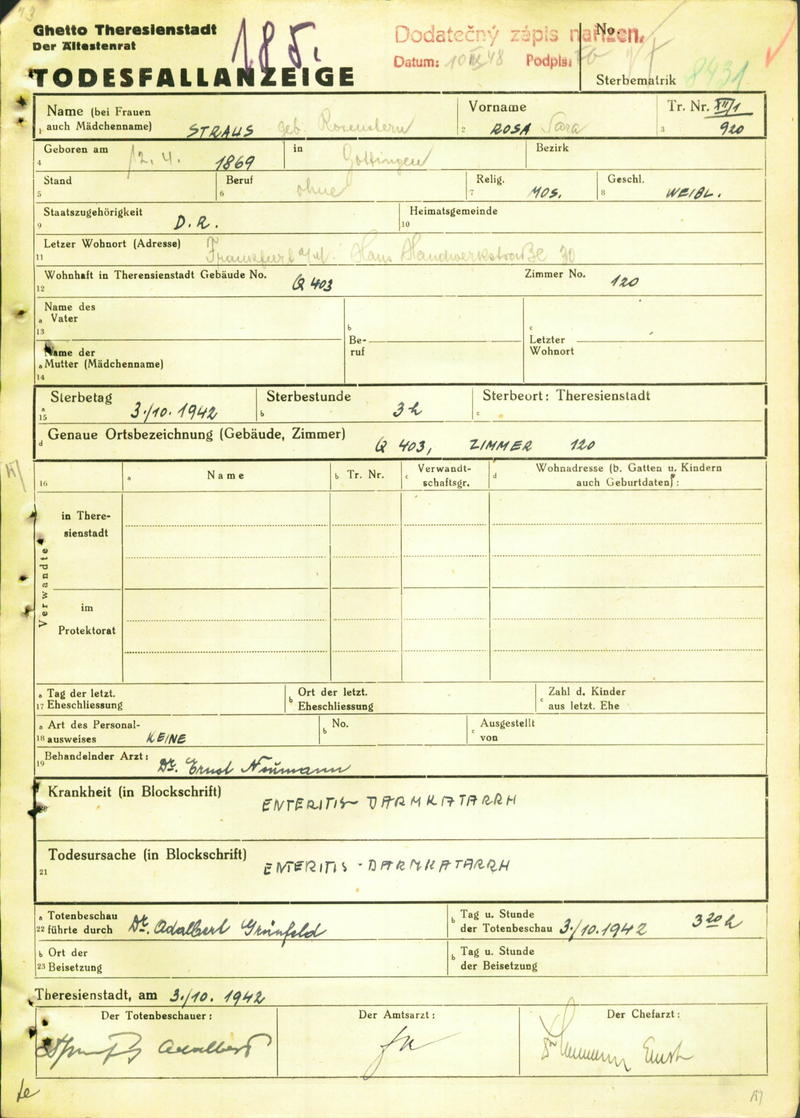 Ghetto Theresienstadt
Der Ältestenrat
185.
TODESFALLANZEIGE
Dodatečný zápis nařízen.
Datum: 10 48 Podpis:
No.
Sterbematrik 8431
Name (bei Frauen auch Mädchenname) STRAUS geb. Rosenstern
1
Vorname ROSA Sara
2
Tr. Nr. XII/1
3 920
Geboren am 12. 4. 1869
4
in Göttingen
Bezirk
Stand
5
Beruf ohne
6
Relig. MOS.
7
Geschl. WEIBL.
8
Staatszugehörigkeit D.R.
9
Heimatsgemeinde
10
Letzer Wohnort (Adresse) Frankfurt a/M. Hans Handwerkstraße 30
11
Wohnhaft in Therensienstadt Gebäude No. Q 403
12
Zimmer No. 120
Name des
a Vater
13
Name der
a Mutter (Mädchenname)
14
b
Be-
ruf
c
Letzter
Wohnort
Sterbetag 3./10. 1942
a
15
Sterbestunde 3 h
b
Sterbeort: Theresienstadt
c
Genaue Ortsbezeichnung (Gebäude, Zimmer) Q 403, ZIMMER 120
d
16
a Name
b Tr. Nr.
c Verwandt-
schaftsgr.
d Wohnadresse (b. Gatten u. Kindern
auch Geburtdaten) :
Verwandte
in There-
sienstadt
im
Protektorat
a Tag der letzt.
17 Eheschliessung
b Ort der letzt.
Eheschliessung
c Zahl d. Kinder
aus letzt. Ehe
a Art des Personal-
18 ausweises KEINE
b No.
c Ausgestellt
von
Behandelnder Arzt: Dr. Ernst Neumann
19
Krankheit (in Blockschrift) ENTERITIS - DARMKATARRH
Todesursache (in Blockschrift) ENTERITIS - DARMKATARRH
21
a Totenbeschau
22 führte durch Dr. Adalbert Grünfeld
b Tag u. Stunde
der Totenbeschau 3./10. 1942 3 20 h
b Ort der
23 Beisetzung
b Tag u. Stunde
der Beisetzung
Theresienstadt, am 3./10. 1942
Der Totenbeschauer:
Der Amtsarzt:
Der Chefarzt:
Adalbert
Dr Neumann Ernst